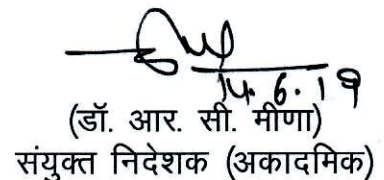 14.6.19
(डॉ. आर. सी. मीणा)
संयुक्त निदेशक (अकादमिक)